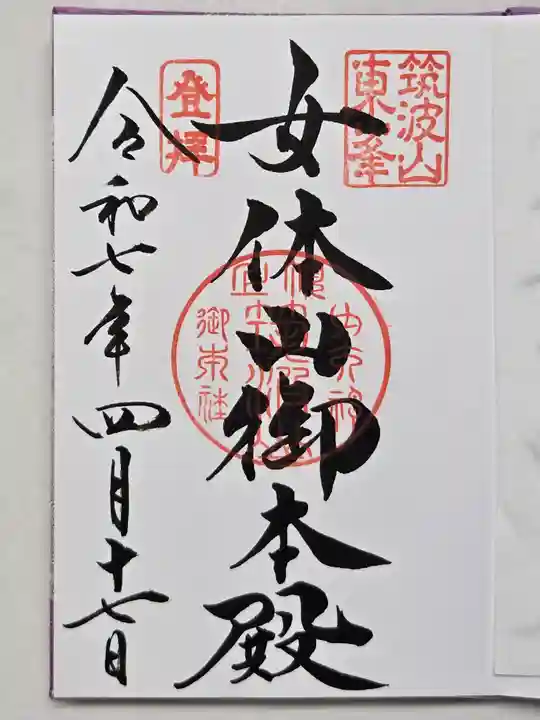 筑波山
東峰
女体山御本殿
登拝
令和七年四月十七日